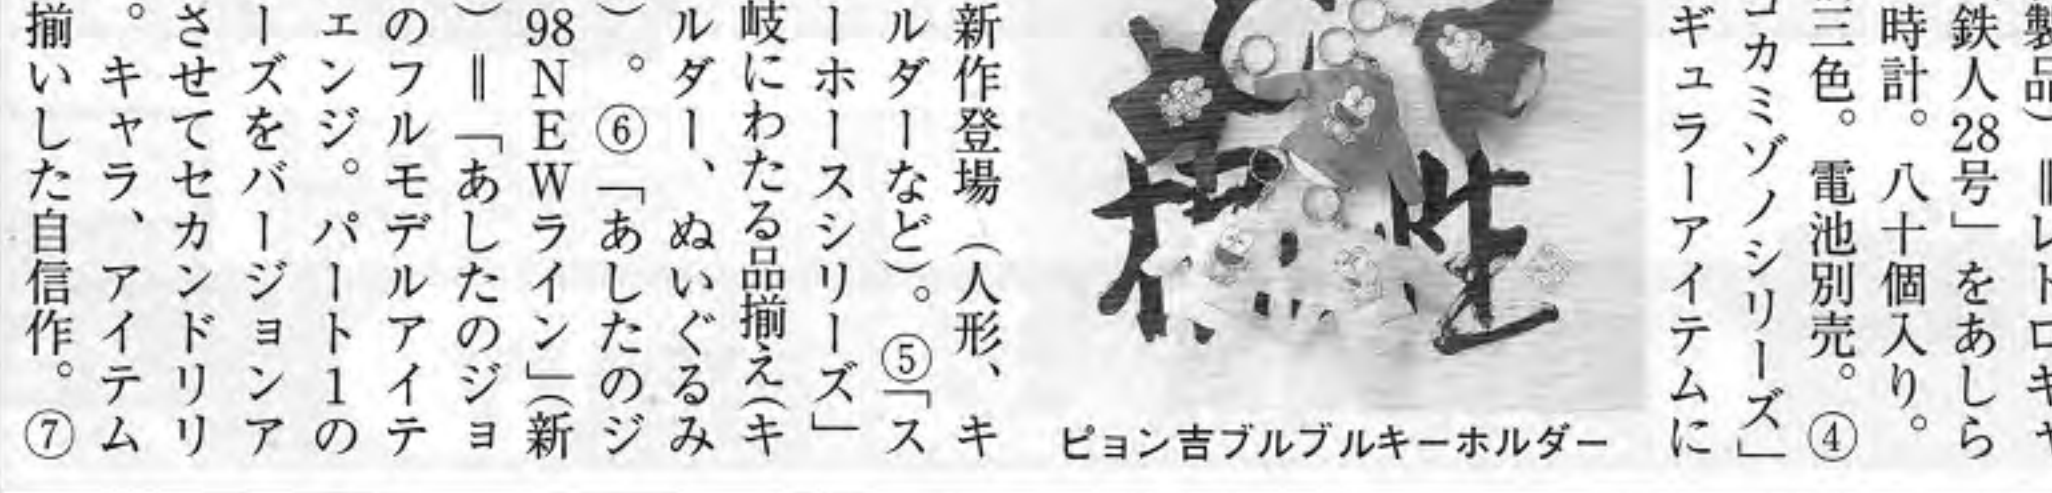 製品）＝レトロキャ
鉄人28号」をあしら
時計。八十個入り。
三色。電池別売。④
コカミゾノシリーズ」
ギュラーアイテムに
根性
ピョン吉ブルブルキーホルダー
新作登場（人形、キ
ルダーなど）。⑤「ス
ーホースシリーズ」
岐にわたる品揃え（キ
ルダー、ぬいぐるみ
）。⑥「あしたのジ
98NEWライン」（新
）＝「あしたのジョ
のフルモデルアイテ
ェンジ。パート1の
ーズをバージョンア
させてセカンドリリ
。キャラ、アイテム
揃いした自信作。⑦